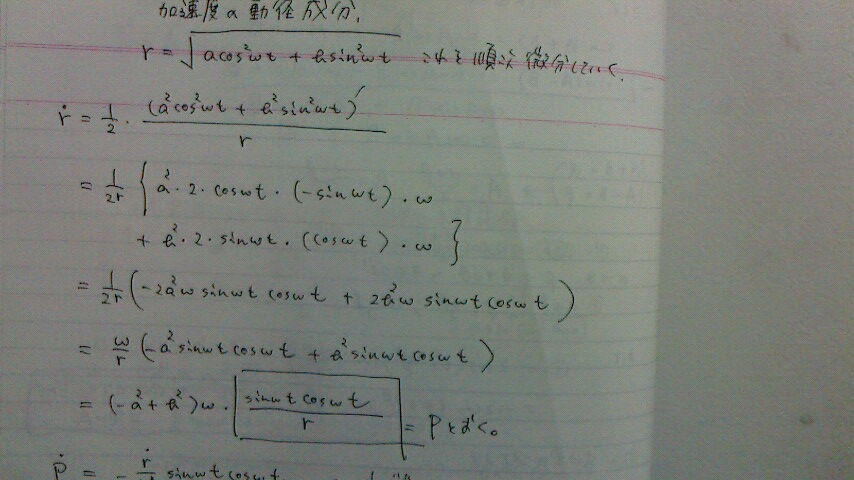 加速度の動径成分.
r = √(acos²ωt + bsin²ωt) これを順次微分していく.
ṙ = 1/2 · (a²cos²ωt + b²sin²ωt)′ / r
= 1/2r { a²·2·cosωt·(-sinωt)·ω
+ b²·2·sinωt·(cosωt)·ω }
= 1/2r (-2a²ω sinωt cosωt + 2b²ω sinωt cosωt)
= ω/r (-a² sinωt cosωt + b² sinωt cosωt)
= (-a² + b²)ω · sinωt cosωt / r = Pとおく。
Ṗ = - ṙ sinωt cosωt